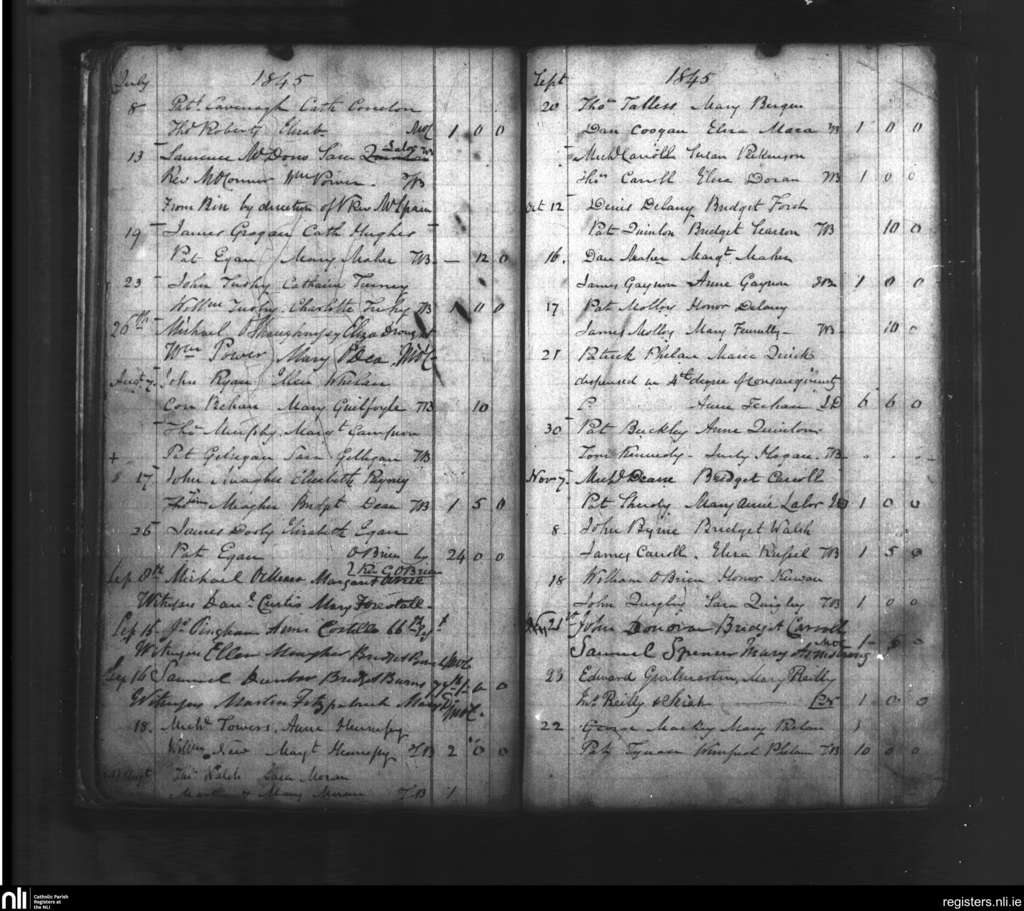 July 1845
8 Patk Cavenagh Cath Conelon
Thos Roberts Elizab 1 0 0
13 Lawrence McDono Sara Lalor
Rev McConner Wm Power TB
From Birr by direction of V Rev Mr Spain
19 James Grogan Cath Hughes
Pat Egan Mary Maher TB — 12 0
23 John Turky Catharin Tierney
Willm Turky Charlotte Turky TB 1 0 0
26th Michael OShaughnessy Eliza
Wm Power Mary ODea
Augt 7 John Ryan Ellen Whelan
Con Behan Mary Guilfoyle TB 10
Thos Murphy Margt Campion
+ Pat Geligan Sara Gelligan TB
17 John Meagher Elizabeth
Meagher Bridgt Dean TB 1 5 0
26 James Dooly Elizabeth Egan
Pat Egan 24 0 0
OBrien by
Rev C OBrien
Sep 8th Michael OMeara Margaret
Witnesses Danl Curtis Mary Forestall
Sep 15 Jas Bingham Anne Costello
Witnesses Ellen Meagher Bridget
Sep 16 Samuel Dunbar Bridget Burns
Witnesses Martin Fitzpatrick Mary
18 Michl Towers Anne Hennessy
Willm New Margt Hennesy TB 2 0 0
Thos Walsh Sara Moran
Mary Moran TB 1
Sept 1845
20 Thos Talless Mary Bergin
Dan Coogan Eliza Mara TB 1 0 0
Michl Carroll Susan Perkinson
Thos Carroll Eliza Doran TB 1 0 0
Oct 12 Denis Delany Bridget Forth
Pat Quinlon Bridget TB 10 0
16 Dan Maher Margt Maher
James Gaynon Anne Gaynon 1 0 0
17 Pat Molloy Honor Delany
James Molloy Mary TB 10 0
21 Patrick Phelan Maria Quirk
dispensed in 4th degree of consanguinity
P. Anne Feehan 6 6 0
30 Pat Buckley Anne Quinlon
Tom Kennedy Judy Hogan TB
Nov 7 Michl Deane Bridget Carroll
Pat Mary Anne Lalor 1 0 0
8 John Byrne Bridget Walsh
James Carroll Eliza Russel TB 1 5 0
18 William OBrien Honor Kirwan
John Quigley Sara Quigley TB 1 0 0
Nov 21st John Donovan Bridget Carroll
Samuel Spencer Mary Armstrong
23 Edward Mary Reilly
Jno Reilly 1 0 0
22 George Mackey Mary Phelan
Patk Tynan Winifred Phelan TB 10 0 0
nli
Catholic Parish
Registers at
the NLI
registers.nli.ie